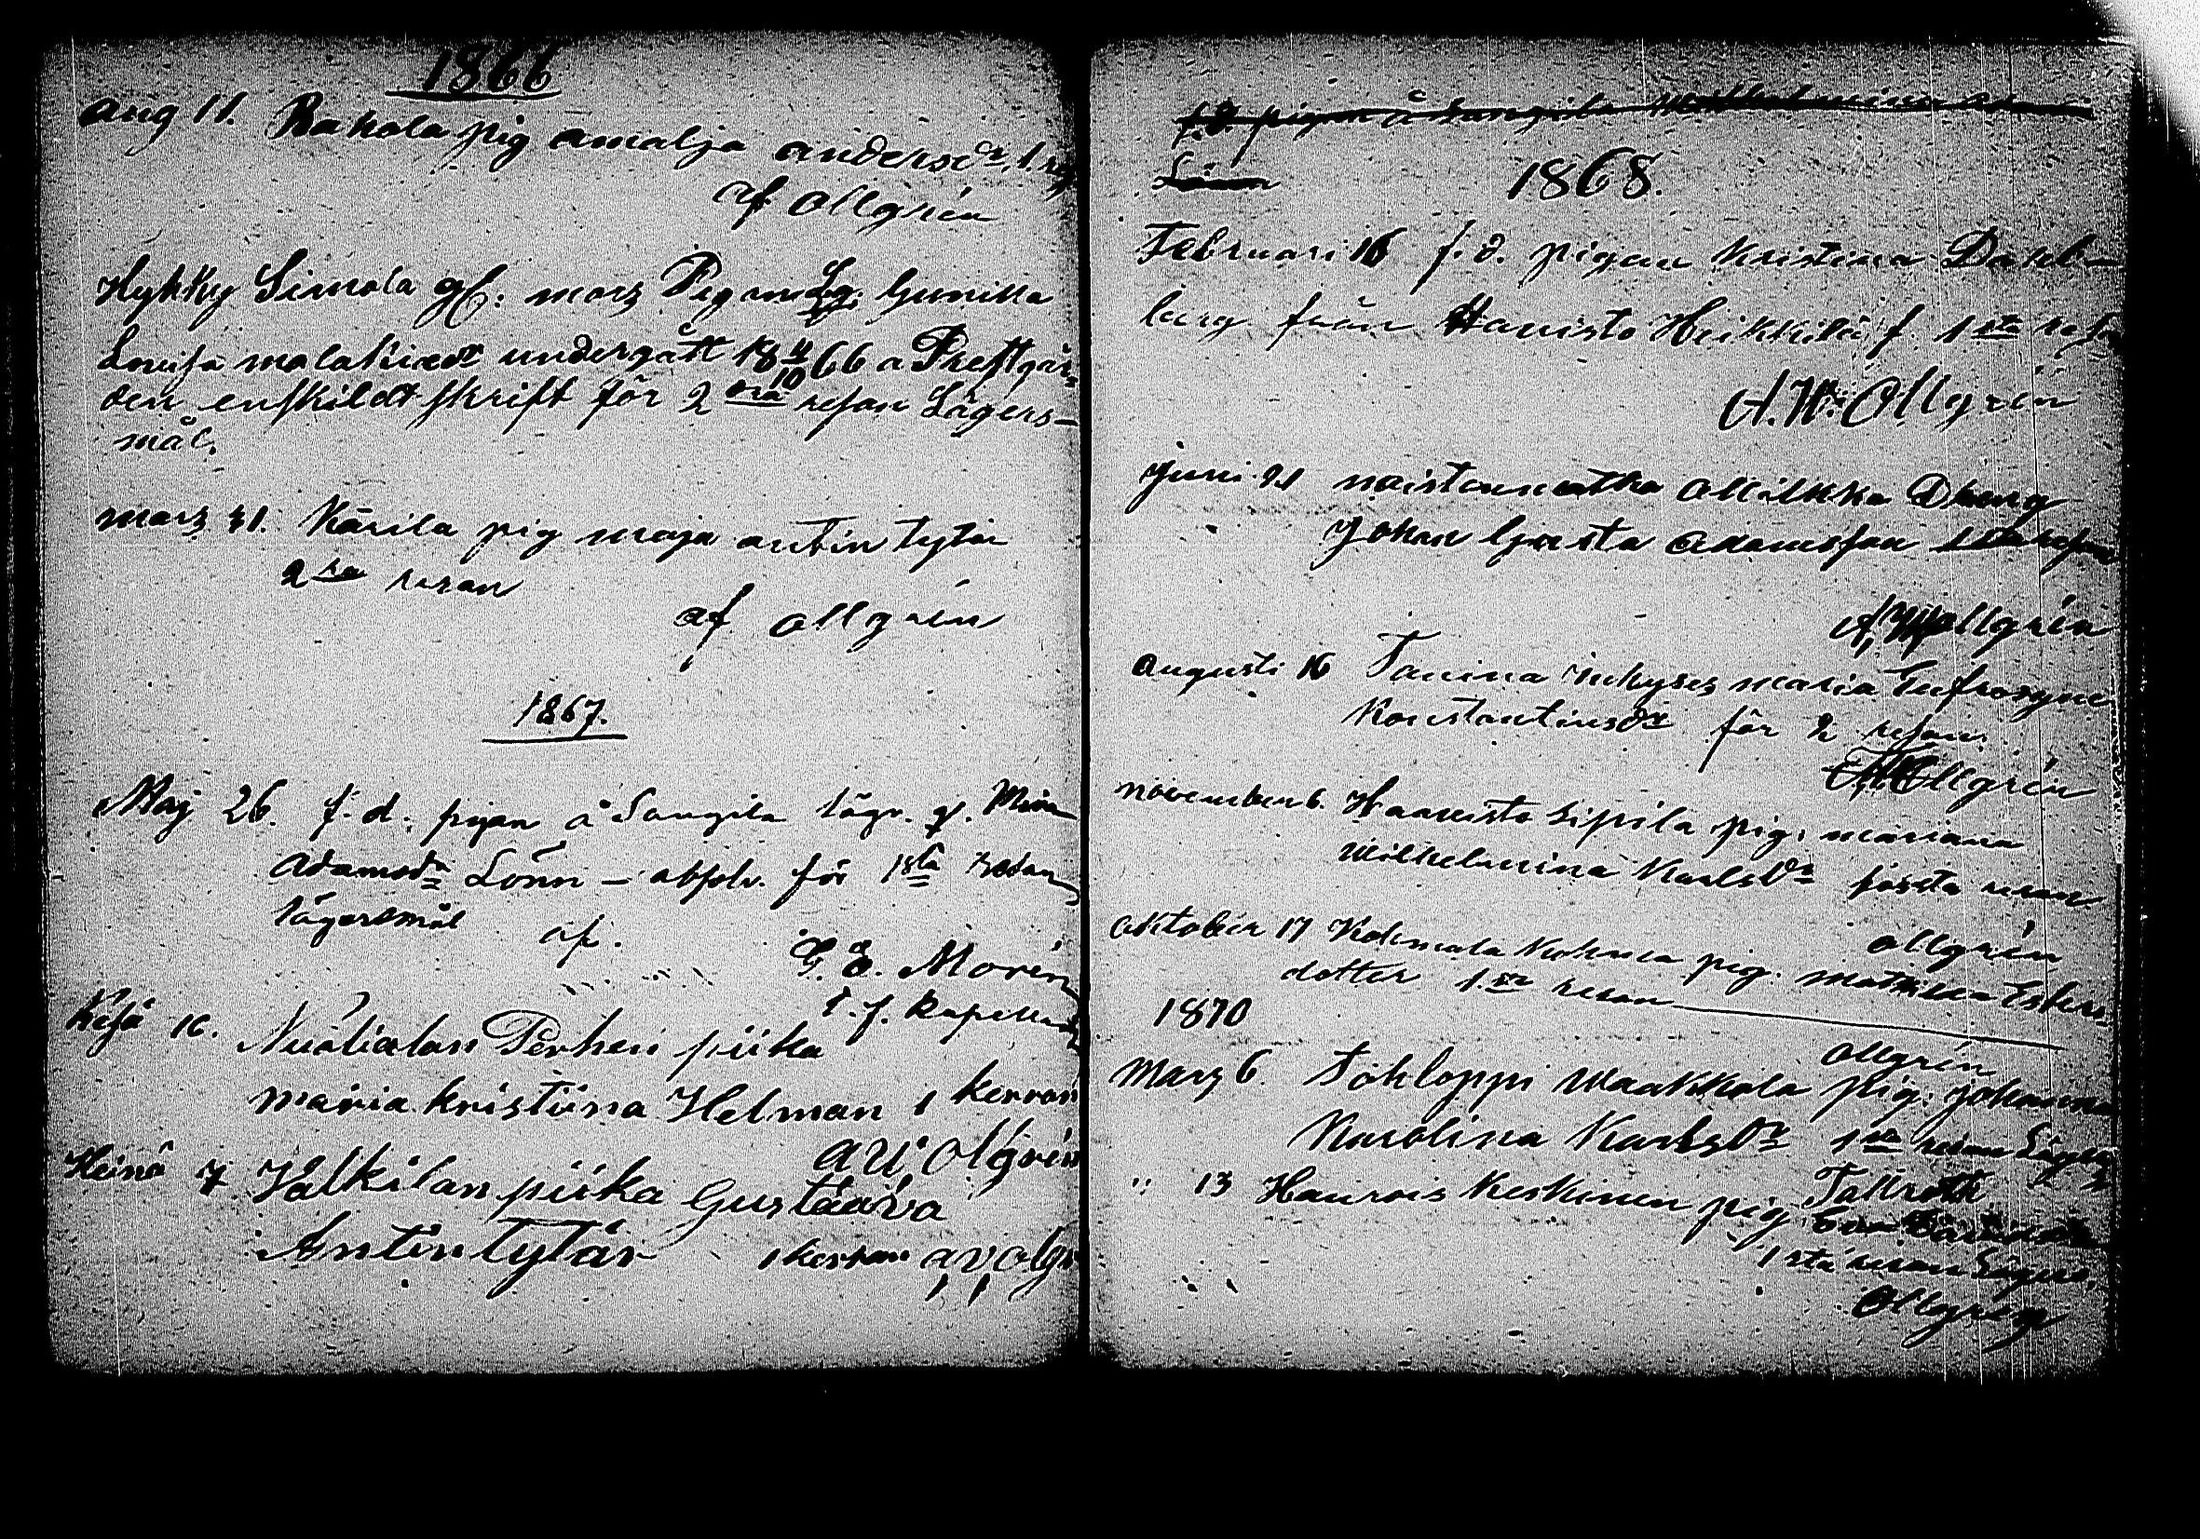 1866
Aug 11. Rakola pig Amalja andersdr. 1.
af Ollgrén
Hykky Simola gl: mars Pigan Lg. Gunilla
Lovisa malakiædr undergått 18 4/10 66 a Prestgår-
den enskildt skrift för 2 dra resan Lägers-
mål.
mars 31. Kärila pig maja antin tytär
2 ra resan
af Ollgrén
1867.
Maj 26. f. d. pigan å Sangila lägr. qf. Mina
Adamsdr Lönn – absolv. för 1sta resan
lägersmål af.
G. E. Morén
t. f. kapellan
Kesä 16. Nuolialan Perheri piika
maria kristiina Helman 1 kerran
A V. Olgrén
Heinä 7 Jalkilan piika Gustaava
Antintytär 1 kerran A V Olgr
f.d. pigan å Sangila Wilhelmina Adams
Lönn
1868.
Februari 16 f. d. pigan Kristina Dahl-
berg från Hauisto Heikkilä f. 1 sta resa
A. W. Ollgrén
Juni 21 noistenmatka Ollilkka Dreng
Johan Gusta Adamsson 1 sta resan
A, W, Ollgrén
Augusti 16 Tanina inhyses maria Eufrosyne
Konstantinsdr för 2 resan.
A, W, Ollgrén
november 6. Haavisto Sipila pig. mariana
Wilhelmina Karlsdr första resan
Ollgrén
Oktober 17 Kolmala Kohma pig. mathilda Eskers-
dotter 1 sta resan
Ollgrén
1870
Mars 6. Tohloppi Waakkola pig. Johanna
Karolina Karlsdr 1 sta resan Läger
Tallroth
" 13 Haurois Keskinen pig.
1 sta resan Lägers.
Ollgrén